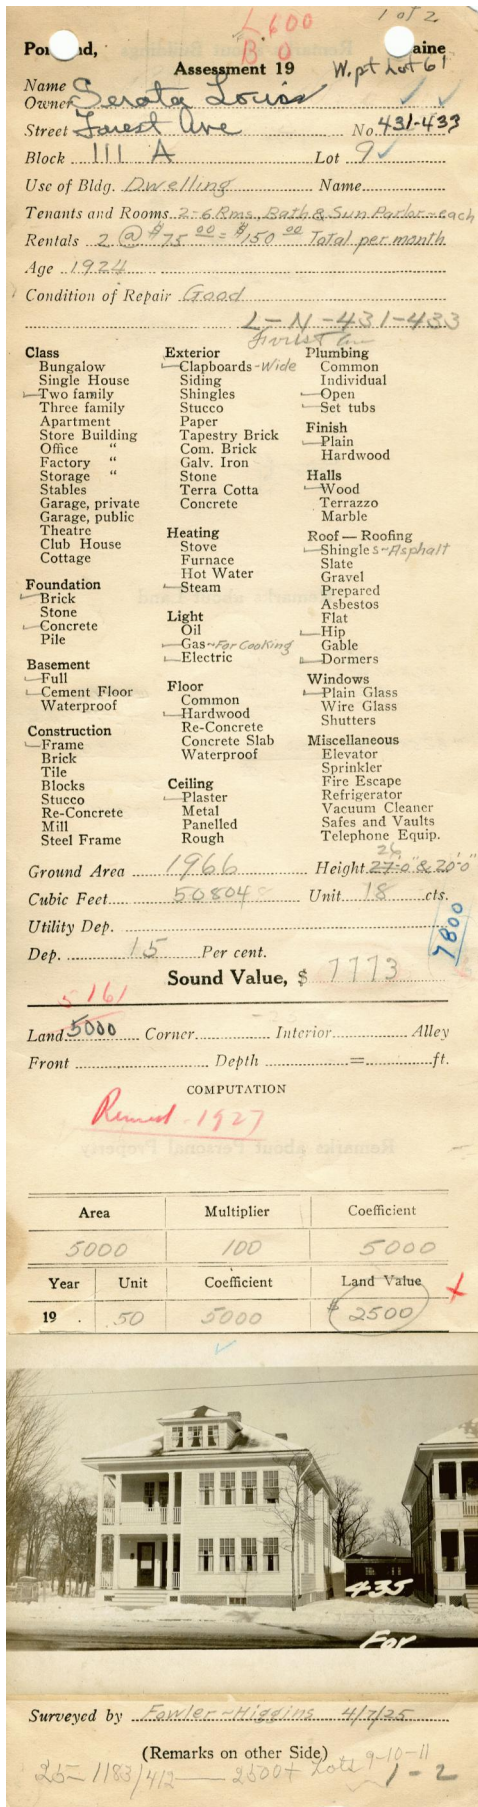 L 600
B 0
1 of 2
Portland, Maine
Assessment 19
W. pt Lot 61
Name
Owner Serota Louis
Street Forest Ave No. 431-433
Block 111 A Lot 9
Use of Bldg. Dwelling Name
Tenants and Rooms 2-6 Rms, Bath & Sun Parlor-each
Rentals 2 @ $75 00 = $150 00 Total per month
Age 1924
Condition of Repair Good
L-N-431-433
Forest Ave
Class
Bungalow
Single House
Two family
Three family
Apartment
Store Building
Office "
Factory "
Storage "
Stables
Garage, private
Garage, public
Theatre
Club House
Cottage
Foundation
Brick
Stone
Concrete
Pile
Basement
Full
Cement Floor
Waterproof
Construction
Frame
Brick
Tile
Blocks
Stucco
Re-Concrete
Mill
Steel Frame
Exterior
Clapboards-Wide
Siding
Shingles
Stucco
Paper
Tapestry Brick
Com. Brick
Galv. Iron
Stone
Terra Cotta
Concrete
Heating
Stove
Furnace
Hot Water
Steam
Light
Oil
Gas-For Cooking
Electric
Floor
Common
Hardwood
Re-Concrete
Concrete Slab
Waterproof
Ceiling
Plaster
Metal
Panelled
Rough
Plumbing
Common
Individual
Open
Set tubs
Finish
Plain
Hardwood
Halls
Wood
Terrazzo
Marble
Roof — Roofing
Shingles-Asphalt
Slate
Gravel
Prepared
Asbestos
Flat
Hip
Gable
Dormers
Windows
Plain Glass
Wire Glass
Shutters
Miscellaneous
Elevator
Sprinkler
Fire Escape
Refrigerator
Vacuum Cleaner
Safes and Vaults
Telephone Equip.
26
Ground Area 1966 Height 27'-0" & 20'-0"
Cubic Feet 50804 Unit 18 cts.
Utility Dep.
7800
Dep. 15 Per cent.
Sound Value, $ 7773
5161
Land 5000 Corner Interior Alley
Front Depth = ft.
COMPUTATION
Revised-1927
Area Multiplier Coefficient
5000 100 5000
Year Unit Coefficient Land Value
19 50 5000 $2500
435
For
Surveyed by Fowler-Higgins 4/7/25
(Remarks on other Side)
25- 1183/412 — 2500+ Lots 9-10-11
1-2